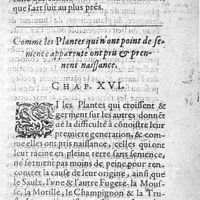 que l'art suit au plus près.
Comme les Plantes qui n'ont point de se-
mence apparente ont pris & pren-
nent naissance.
CHAP. XVI.
SI les Plantes qui croissent &
germent sur les autres donnêt
de la difficulté à cõnoistre leur
premiere generation, & com-
me elles ont pris naissance, celles qui
ont racine en pleine terre sans semence,
ne font pas moins de peine pour rencon-
trer la cause de leur origine: ainsi que
le Saulx, l'une & l'autre Fugere, la Mous-
se, la Morille, le Champignon & la Tru-